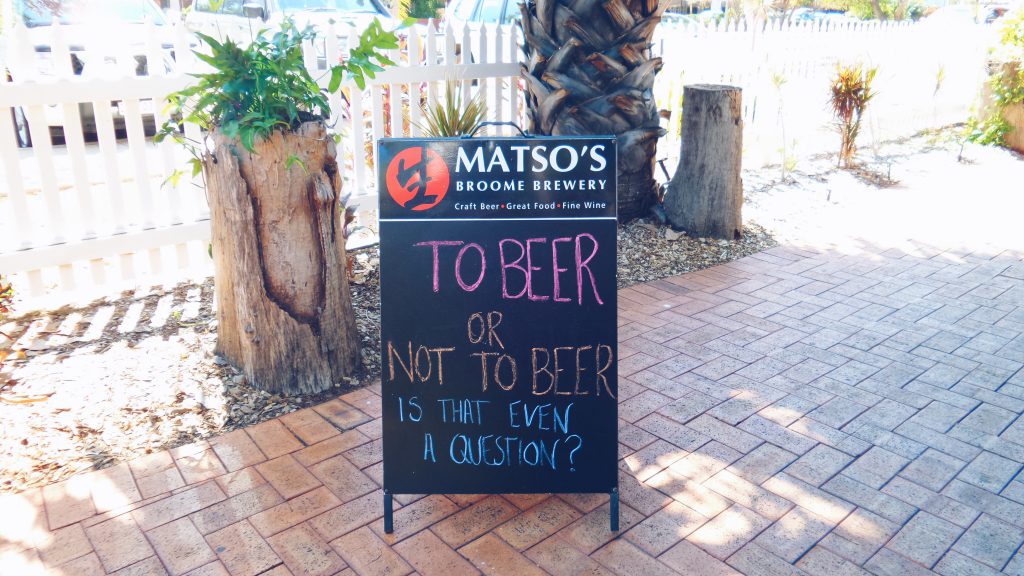 MATSO'S
BROOME BREWERY
Craft Beer • Great Food • Fine Wine
TO BEER
OR
NOT TO BEER
IS THAT EVEN
A QUESTION?